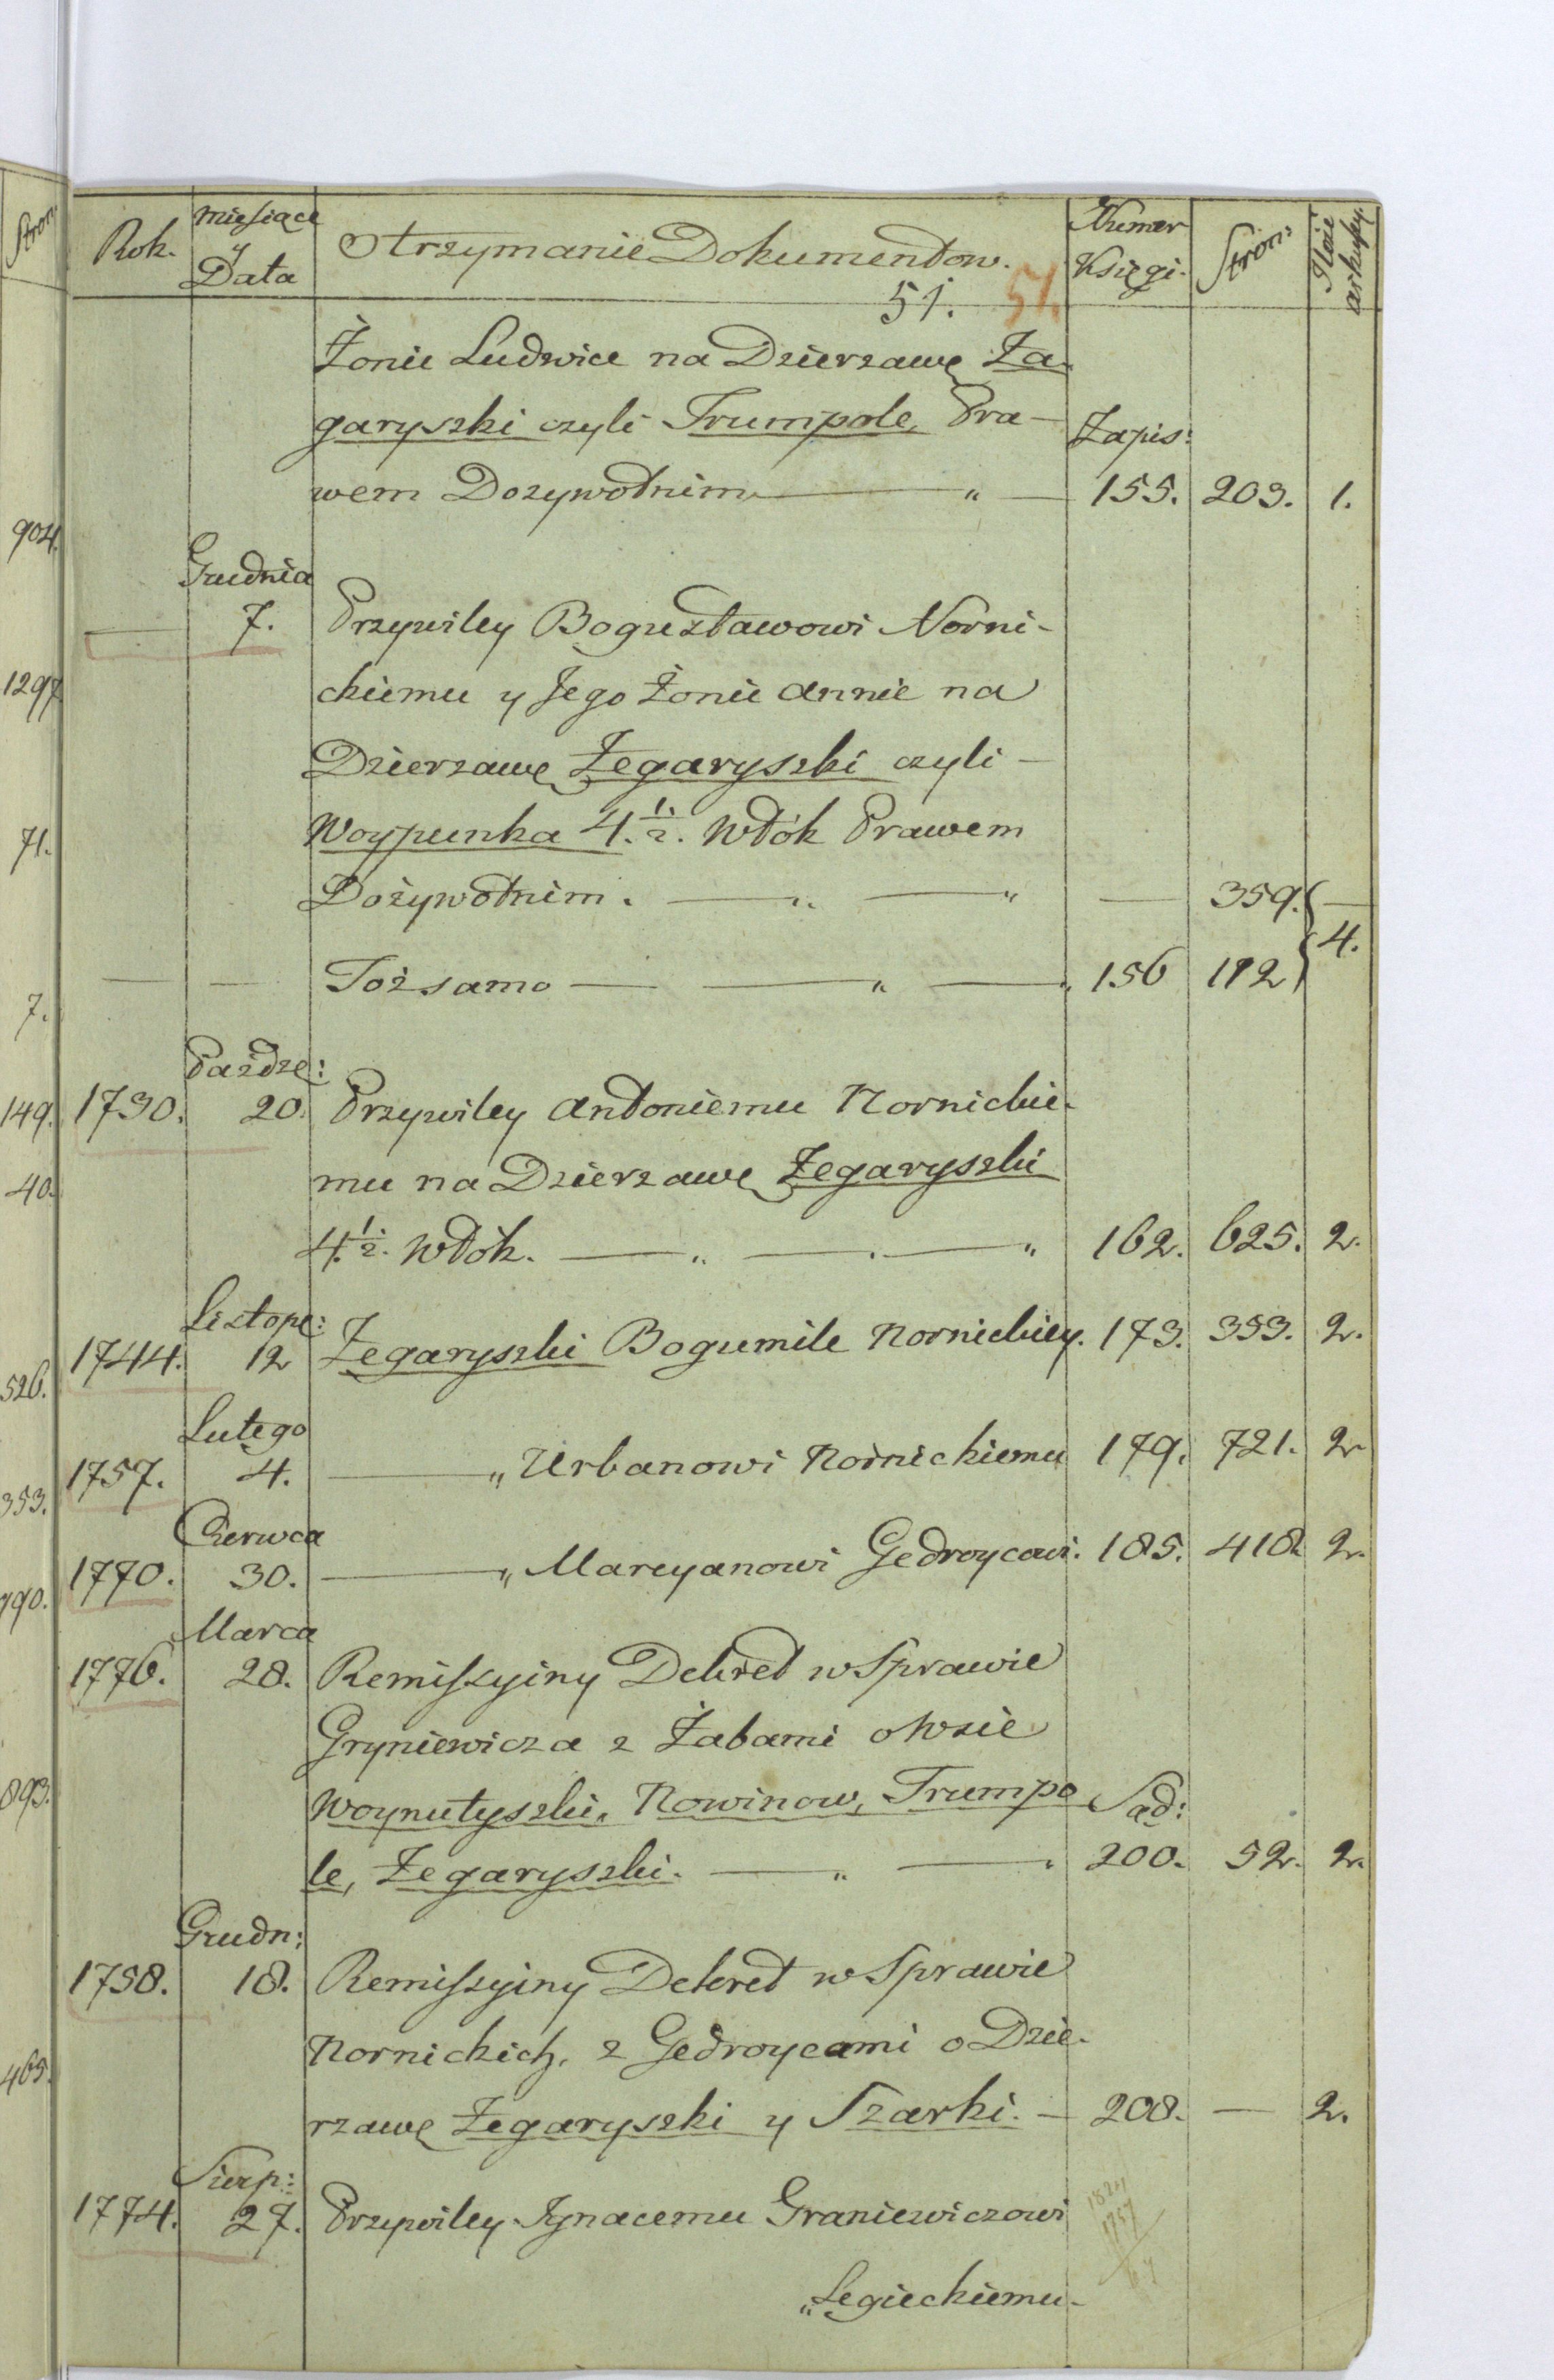 Stron:
Rok.
miesiące
y
Data
Otrzymanie Dokumentow.
Numer
Księgi.
Stron:
Iloie
arkuszy.
51. 51.
Żonie Ludwice na Dzierzawę Ża-
garyszki czyli Trumpole, Pra-
Zapis:
wem Dozywotnim " 155. 203. 1.
904.
Grudnia
7. Przywiley Boguzławowi Norni-
1297
ckiemu y Jego Żonie Annie na
Dzierzawę Żegaryszki czyli
71.
Woypunka 4. 1/2. Włók Prawem
Dożywotnim. " " — 359. —
4.
Tożsamo " " 156 112
7.
Paźdze:
149. 1730. 20. Przywiley Antoniemu Nornickie-
40.
mu na Dzierzawę Żegaryszki
4. 1/2. Włók. " " 162. 625. 2.
Listopa:
526. 1744. 12 Żegaryszki Bogumile Nornickiey. 173. 353. 2.
Lutego
1757. 4. " Urbanowi Nornickiemu 179. 721. 2
353.
Czerwca
1770. 30. " Marcyanowi Gedroycowi. 185. 418. 2.
790.
Marca
1776. 28. Remiszyiny Dekret w Sprawie
Gryniewicza z Żabami o Wsie
893.
Woynutyszki, Nowinow, Trumpo
Sąd:
le, Żegaryszki. " 200. 52. 2.
Grudn:
1758. 18. Remiszyiny Dekret w Sprawie
Nornickich, z Gedroycami o Dzie-
465.
rzawę Żegaryszki y Szarki. — 208. — 2.
Sierp:
1774. 27. Przywiley Ignacemu Graniewiczowi
1824
1757
67
"Legieckiemu-